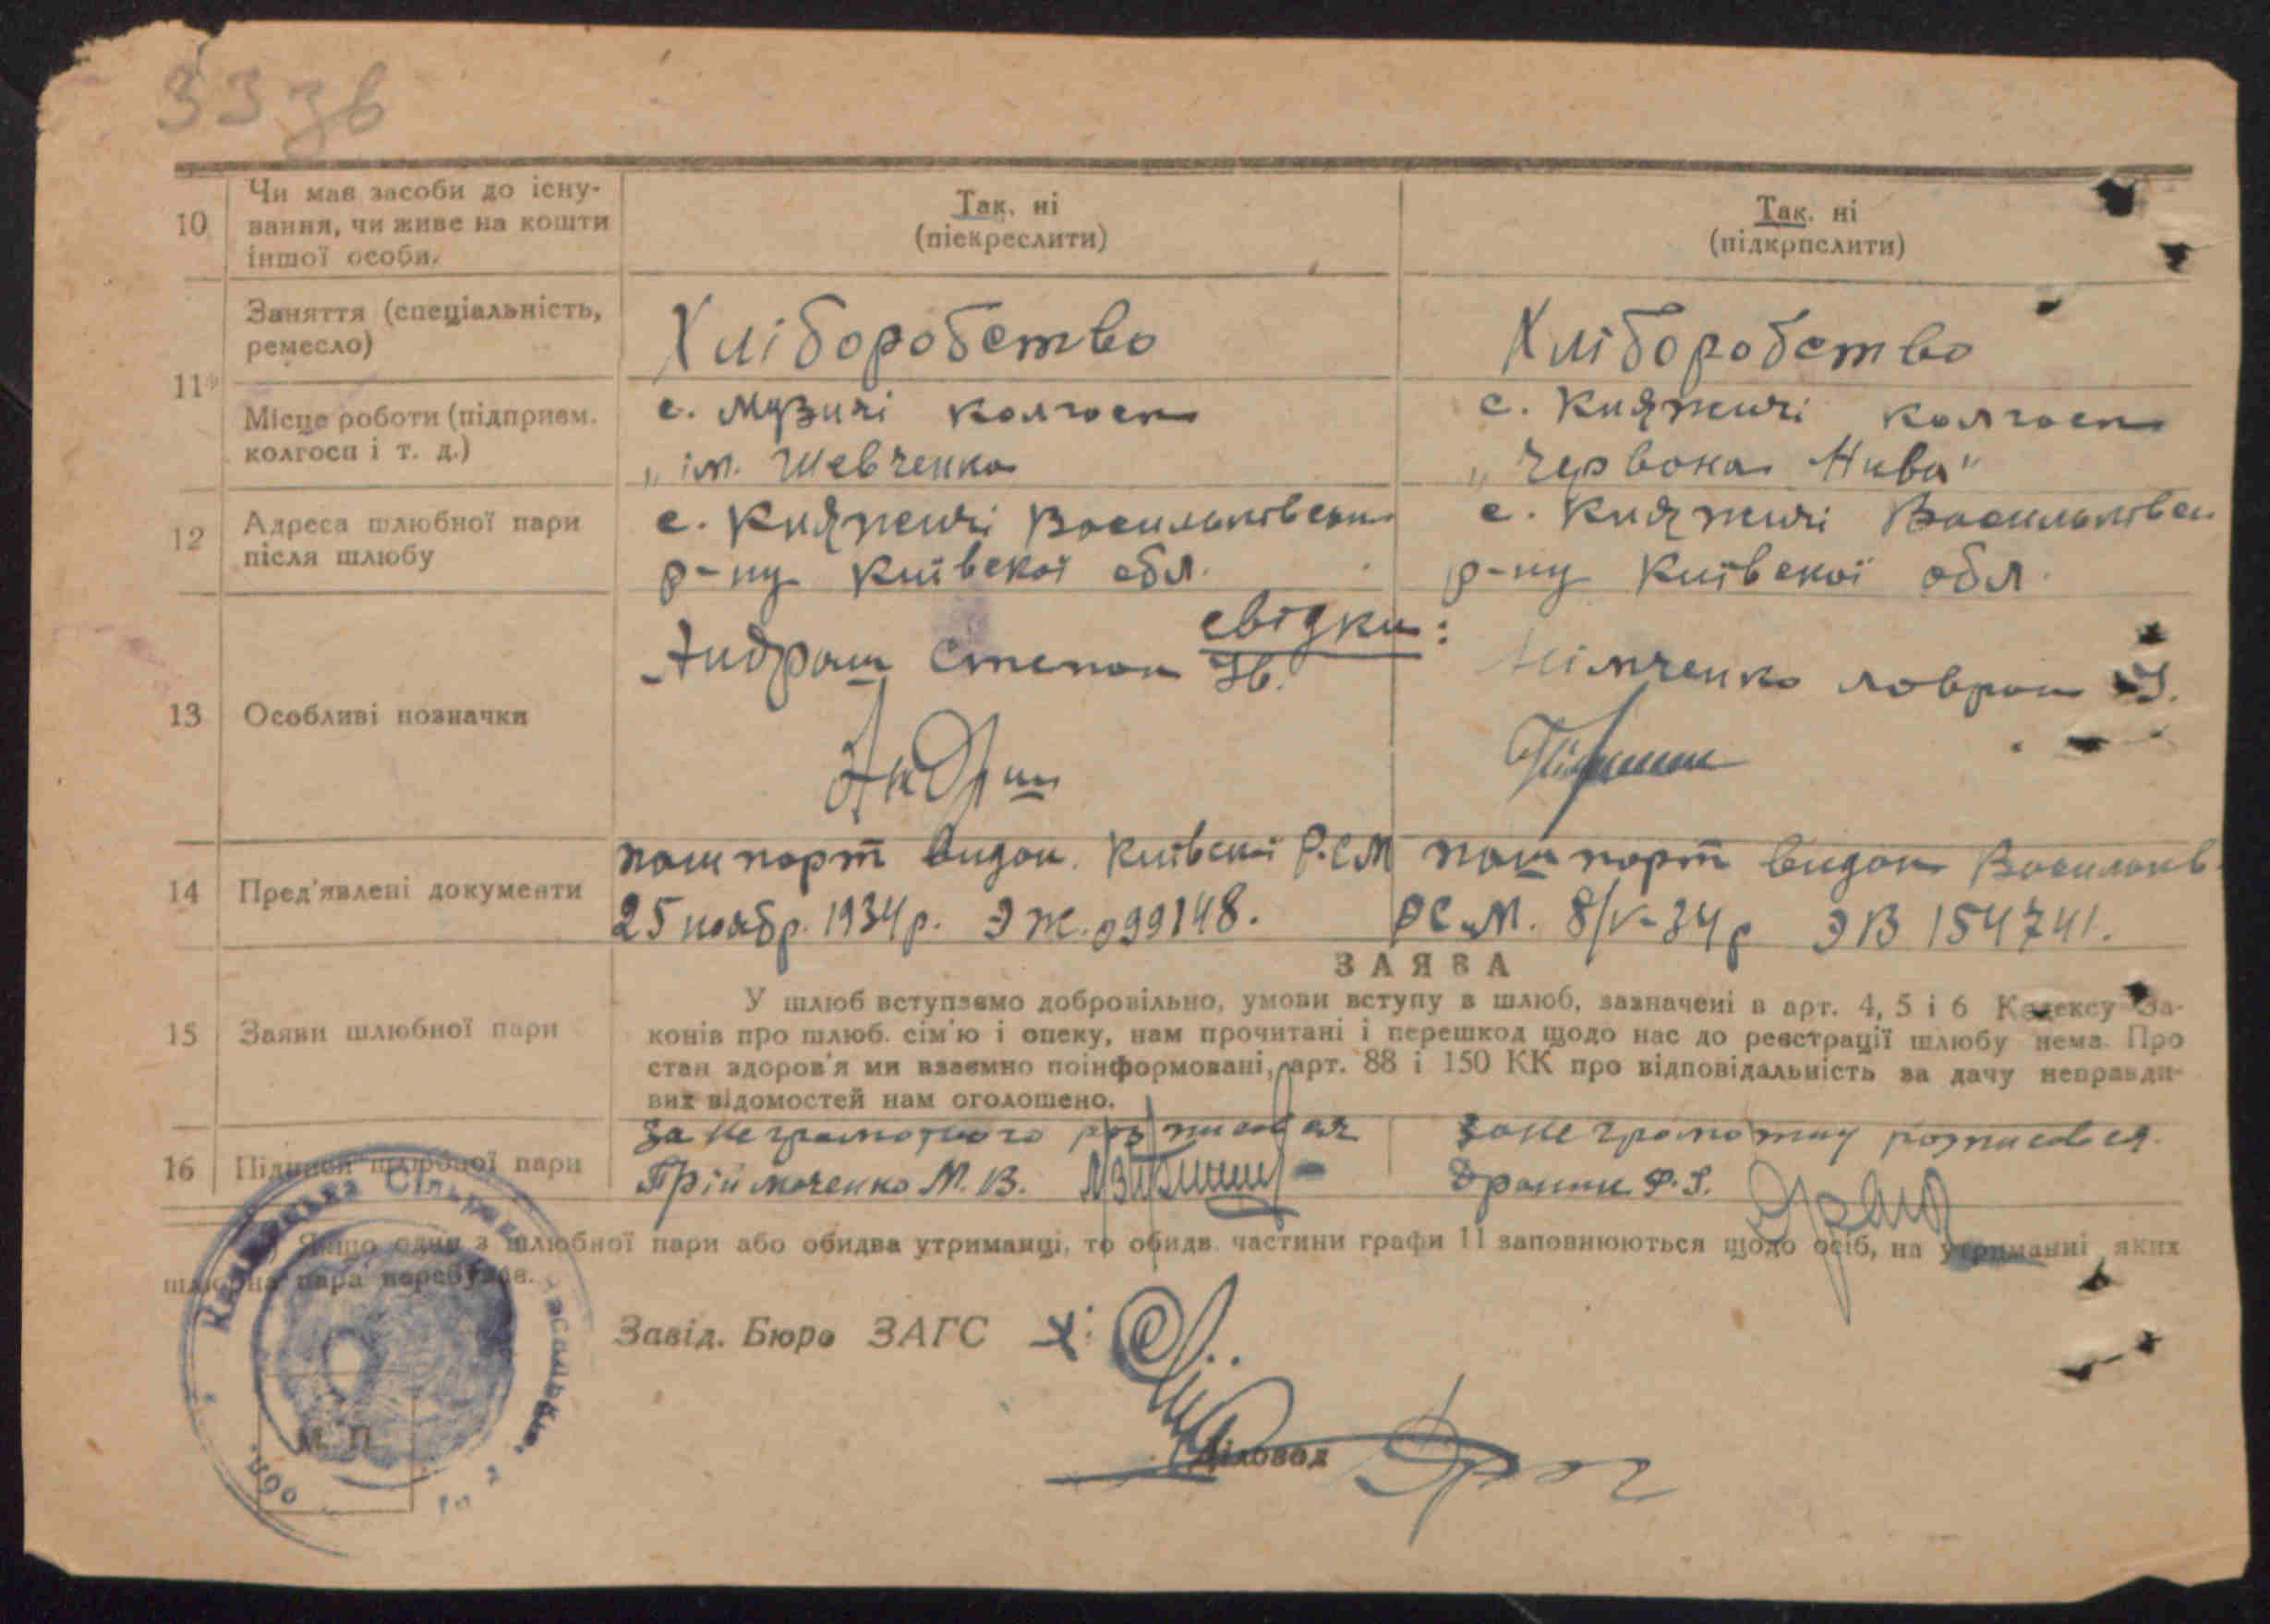 33 зв
10
Чи має засоби до існу-
вання, чи живе на кошти
іншої особи.
Так, ні
(піекреслити)
Так, ні
(підкрпслити)
11*
Заняття (спеціальність,
ремесло)
Хліборобство
Хліборобство
Місце роботи (підприєм.
колгосп і т. д.)
с. Музичі колгосп
„ім. Шевченка
с. Княжичі колгосп
„Червона Нива"
12
Адреса шлюбної пари
після шлюбу
с. Княжичі Васильківськ
р-ну Київської обл.
с. Княжичі Васильківсь
р-ну Київської обл.
13
Особливі позначки
свідки:
Андраш Степан Ів.
Лаврен
14
Пред'явлені документи
пашпорт видан. Київськ Р.С.М
25 ноябр. 1934 р. ЭЖ. 099148.
пашпорт видан Васильків.
РС.М. 8/V-34 р ЭВ 154741.
15
Заяви шлюбної пари
ЗАЯВА
У шлюб вступаємо добровільно, умови вступу в шлюб, зазначені в арт. 4, 5 і 6 Кодексу За-
конів про шлюб. сім'ю і опеку, нам прочитані і перешкод щодо нас до реєстрації шлюбу нема. Про
стан здоров'я ми взаємно поінформовані, арт. 88 і 150 КК про відповідальність за дачу неправди-
вих відомостей нам оголошено.
16
Підписи шлюбної пари
за неграмотного розписався
Приймаченко М. В.
за неграмотну розписався
Ф. І.
Якщо один з шлюбної пари або обидва утриманці, то обидв. частини графи 11 заповнюються щодо осіб, на утриманні яких
шлюбна пара перебуває.
Завід. Бюро ЗАГС
Діловод
М. П.
Княжицька Сільрада
обл.